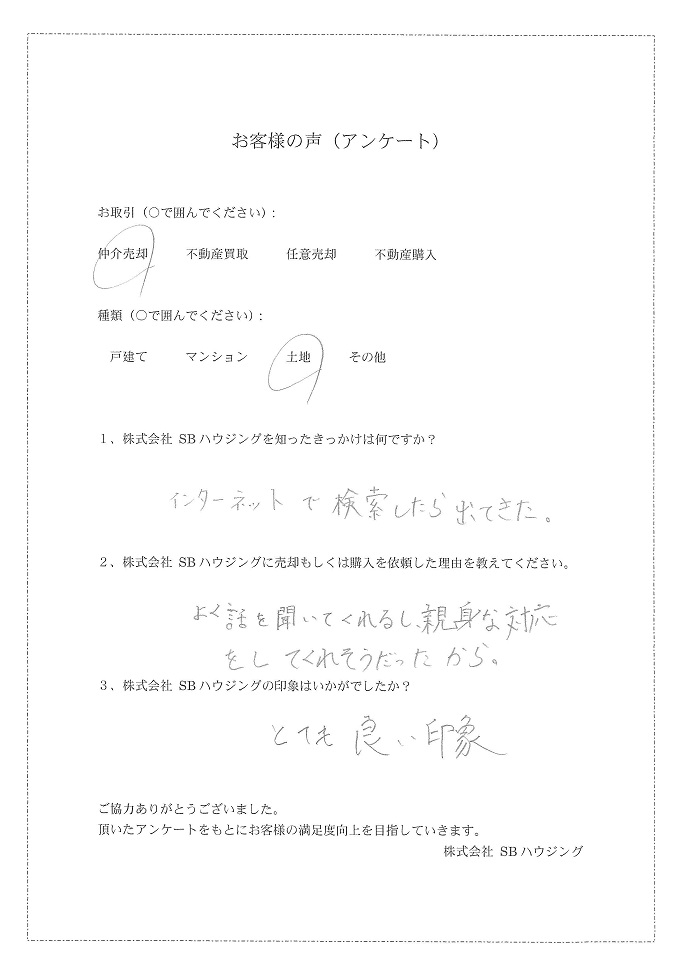 お客様の声（アンケート）
お取引（○で囲んでください）:
仲介売却　不動産買取　任意売却　不動産購入
種類（○で囲んでください）:
戸建て　マンション　土地　その他
１、株式会社 SBハウジングを知ったきっかけは何ですか？
インターネットで検索したら出てきた。
２、株式会社 SBハウジングに売却もしくは購入を依頼した理由を教えてください。
よく話を聞いてくれるし、親身な対応
をしてくれそうだったから。
３、株式会社 SBハウジングの印象はいかがでしたか？
とても良い印象
ご協力ありがとうございました。
頂いたアンケートをもとにお客様の満足度向上を目指していきます。
株式会社 SBハウジング